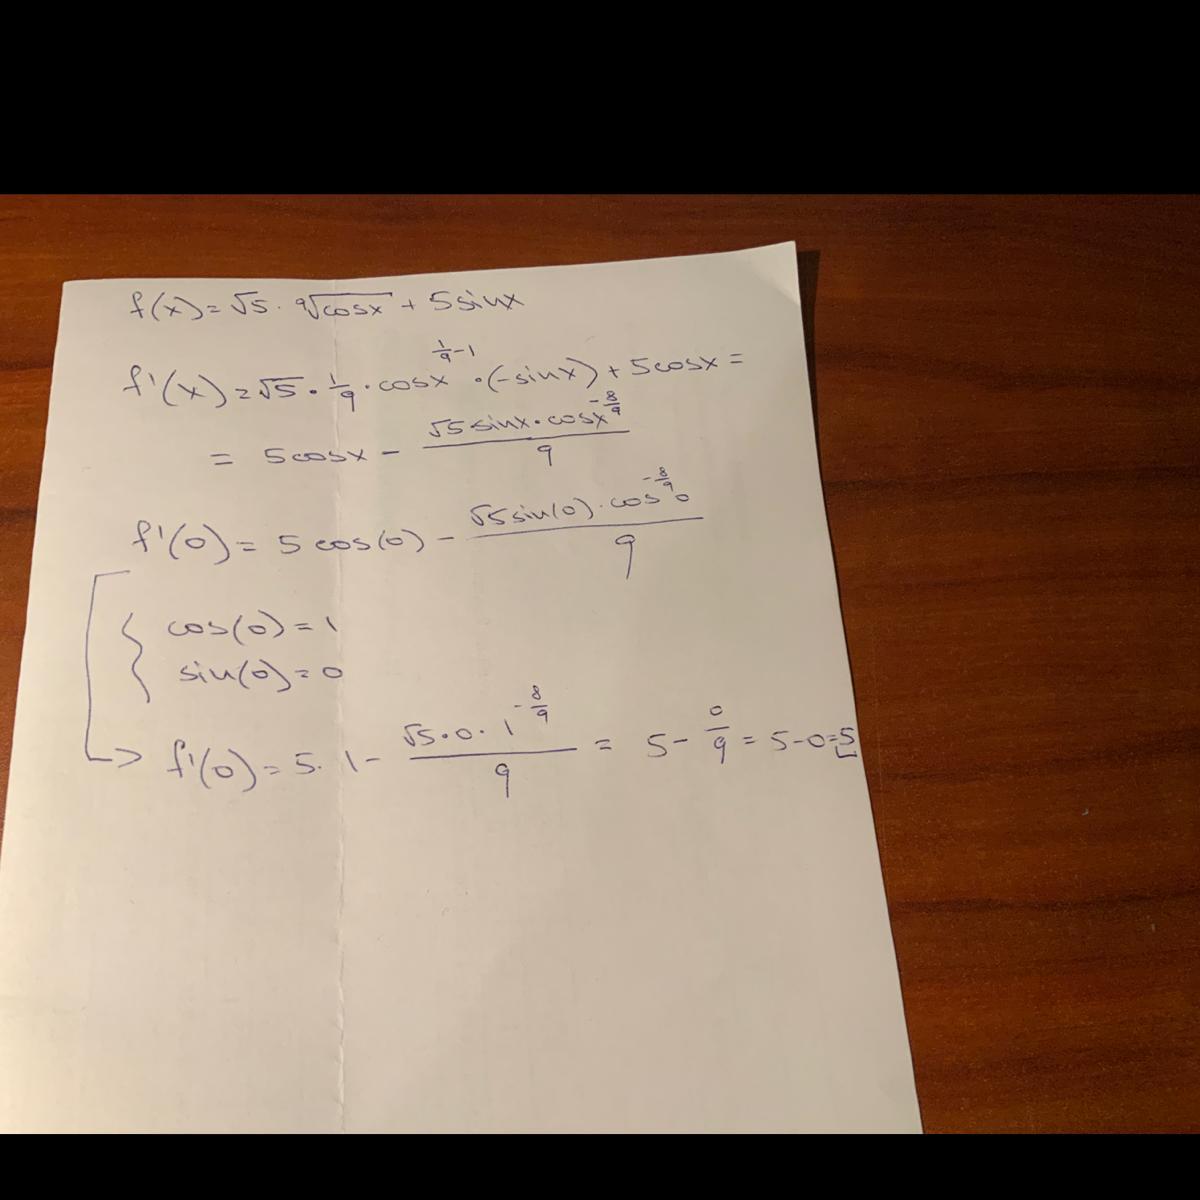 f(x) = √5 · ⁹√cosx + 5sinx
f'(x) = √5 · 1/9 · cosx^(1/9 - 1) · (-sinx) + 5cosx =
= 5cosx - (√5 sinx · cosx^(-8/9))/9
f'(0) = 5 cos(0) - (√5 sin(0) · cos^(-8/9) 0)/9
cos(0) = 1
sin(0) = 0
f'(0) = 5 · 1 - (√5 · 0 · 1^(-8/9))/9 = 5 - 0/9 = 5 - 0 = 5